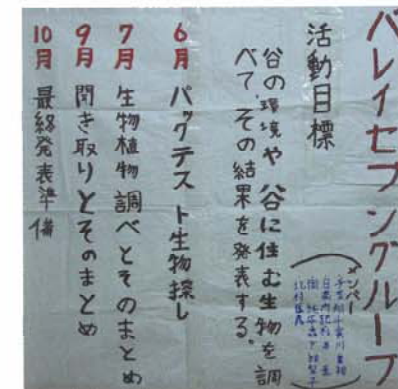 バレイセブングループ
メンバー
活動目標
谷の環境や谷に住む生物を調
べて、その結果を発表する。
6月 パックテスト生物探し
7月 生物植物調べとそのまとめ
9月 聞き取りとそのまとめ
10月 最終発表準備